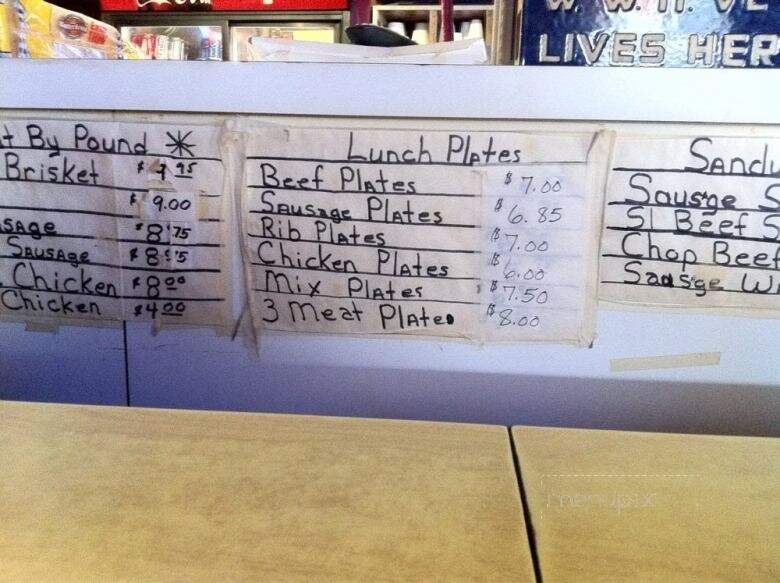 LIVES HER
t By Pound *
Brisket $ 9 95
$ 9.00
sage $8.75
Sausage $8
Chicken $8 00
Chicken $4 00
Lunch Plates
Beef Plates $7.00
Sausage Plates $6.85
Rib Plates $7.00
Chicken Plates $6.00
Mix Plates $7.50
3 Meat Plates $8.00
Sand
Sausge S
Sl Beef S
Chop Beef
Sausge Wi
menupix